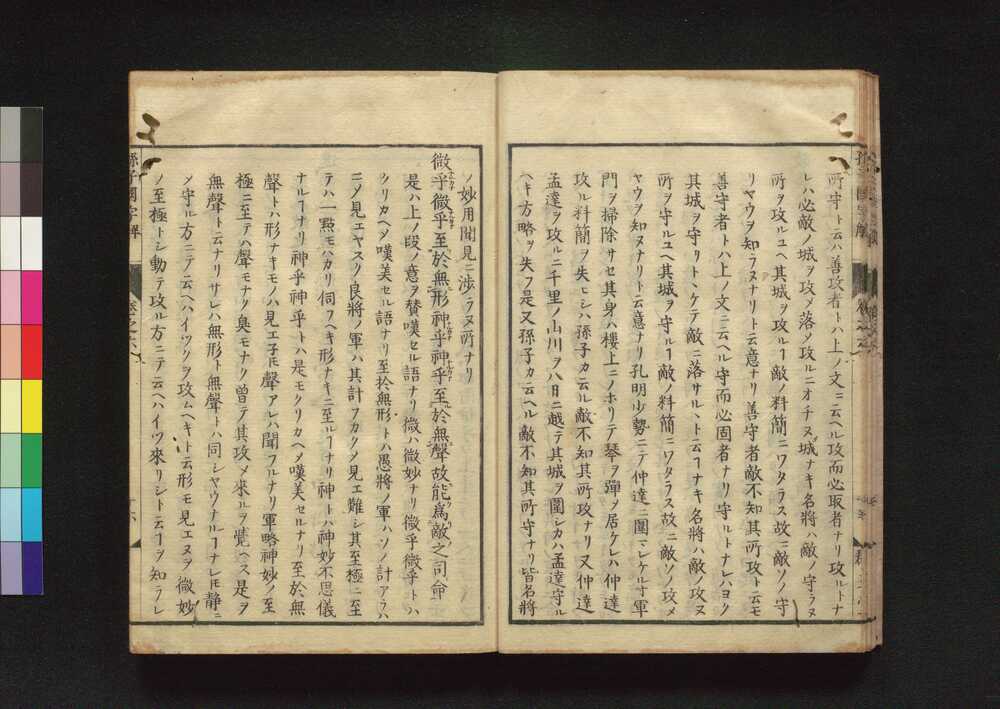 所守ト云ハ善攻者トハ上ノ文ニ云ヘル攻而必取者ナリ攻ルトナ
レハ必敵ノ城ヲ攻メ落ソ攻ルニオチヌ城ナキ名將ハ敵ノ守ラヌ
所ヲ攻ルユヘ其城ヲ攻ルヿ敵ノ料簡ニワタラス故ニ敵ソノ守
リヤウヲ知ラヌナリト云意ナリ善守者敵不知其所攻ト云モ
善守者トハ上ノ文ニ云ヘル守而必固者ナリ守ルトナレハヨク
其城ヲ守リトヽケテ敵ニ落サルヽト云ヿナキ名將ハ敵ノ攻ヌ
所ヲ守ルユヘ其城ヲ守ルヿ敵ノ料簡ニワタラス故ニ敵ソノ攻メ
ヤウヲ知ヌナリト云意ナリ孔明少勢ニテ仲達ニ圍マレケル寸軍
門ヲ掃除サセ其身ハ樓上ニノホリテ琴ヲ彈ヲ居ケレハ仲達
攻ル料簡ヲ失ヒシハ孫子カ云ル敵不知其所攻ナリ又仲達
孟達ヲ攻ルニ千里ノ山川ヲ八日ニ越テ其城ヲ圍シカハ孟達守ル
ヘキ方略ヲ失フ是又孫子カ云ヘル敵不知其所守ナリ皆名將
ノ妙用聞見ニ渉ラヌ所ナリ
微乎微乎至於無形神乎神乎至於無聲故能爲敵之司命
是ハ上ノ段ノ意ヲ賛嘆セル語ナリ微ハ微妙ナリ微乎微乎トハ
クリカヘソ嘆美セル語ナリ至於無形トハ愚將ノ軍ハソノ計アラハ
ニソ見エヤスク良將ノ軍ハ其計フカクソ見エ難シ其至極ニ至
テハ一點モハカリ伺フヘキ形ナキニ至ルヿナリ神トハ神妙不思儀
ナルヿナリ神乎神乎トハ是モクリカヘソ嘆美セルナリ至於無
聲トハ形ナキモノハ見エ子𪜈聲アレハ聞フルナリ軍略神妙ノ至
極ニ至テハ聲モナク臭モナク曾テ其攻メ來ルヲ覺ヘス是ヲ
無聲ト云ナリサレハ無形ト無聲トハ同シヤウナルヿナレ𪜈靜ニ
ソ守ル方ニテ云ヘハイツクヲ攻ムヘキト云形モ見エヌヲ微妙
ノ至極トシ動テ攻ル方ニテ云ヘハイツ來リシト云ヿヲ知ラレ
孫子國字解
卷之六